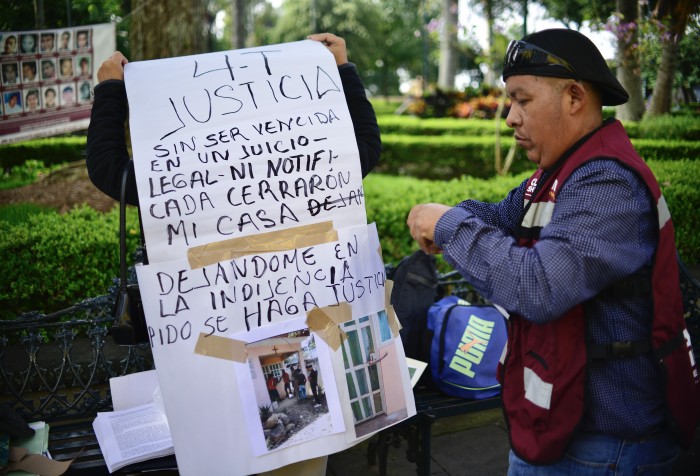 4-T
JUSTICIA
SIN SER VENCIDA
EN UN JUICIO
LEGAL-NI NOTIFI-
CADA CERRARÓN
MI CASA DEJAN
DEJANDOME EN
LA INDIJENCIA
PIDO SE HAGA JUSTICIA
PUMA